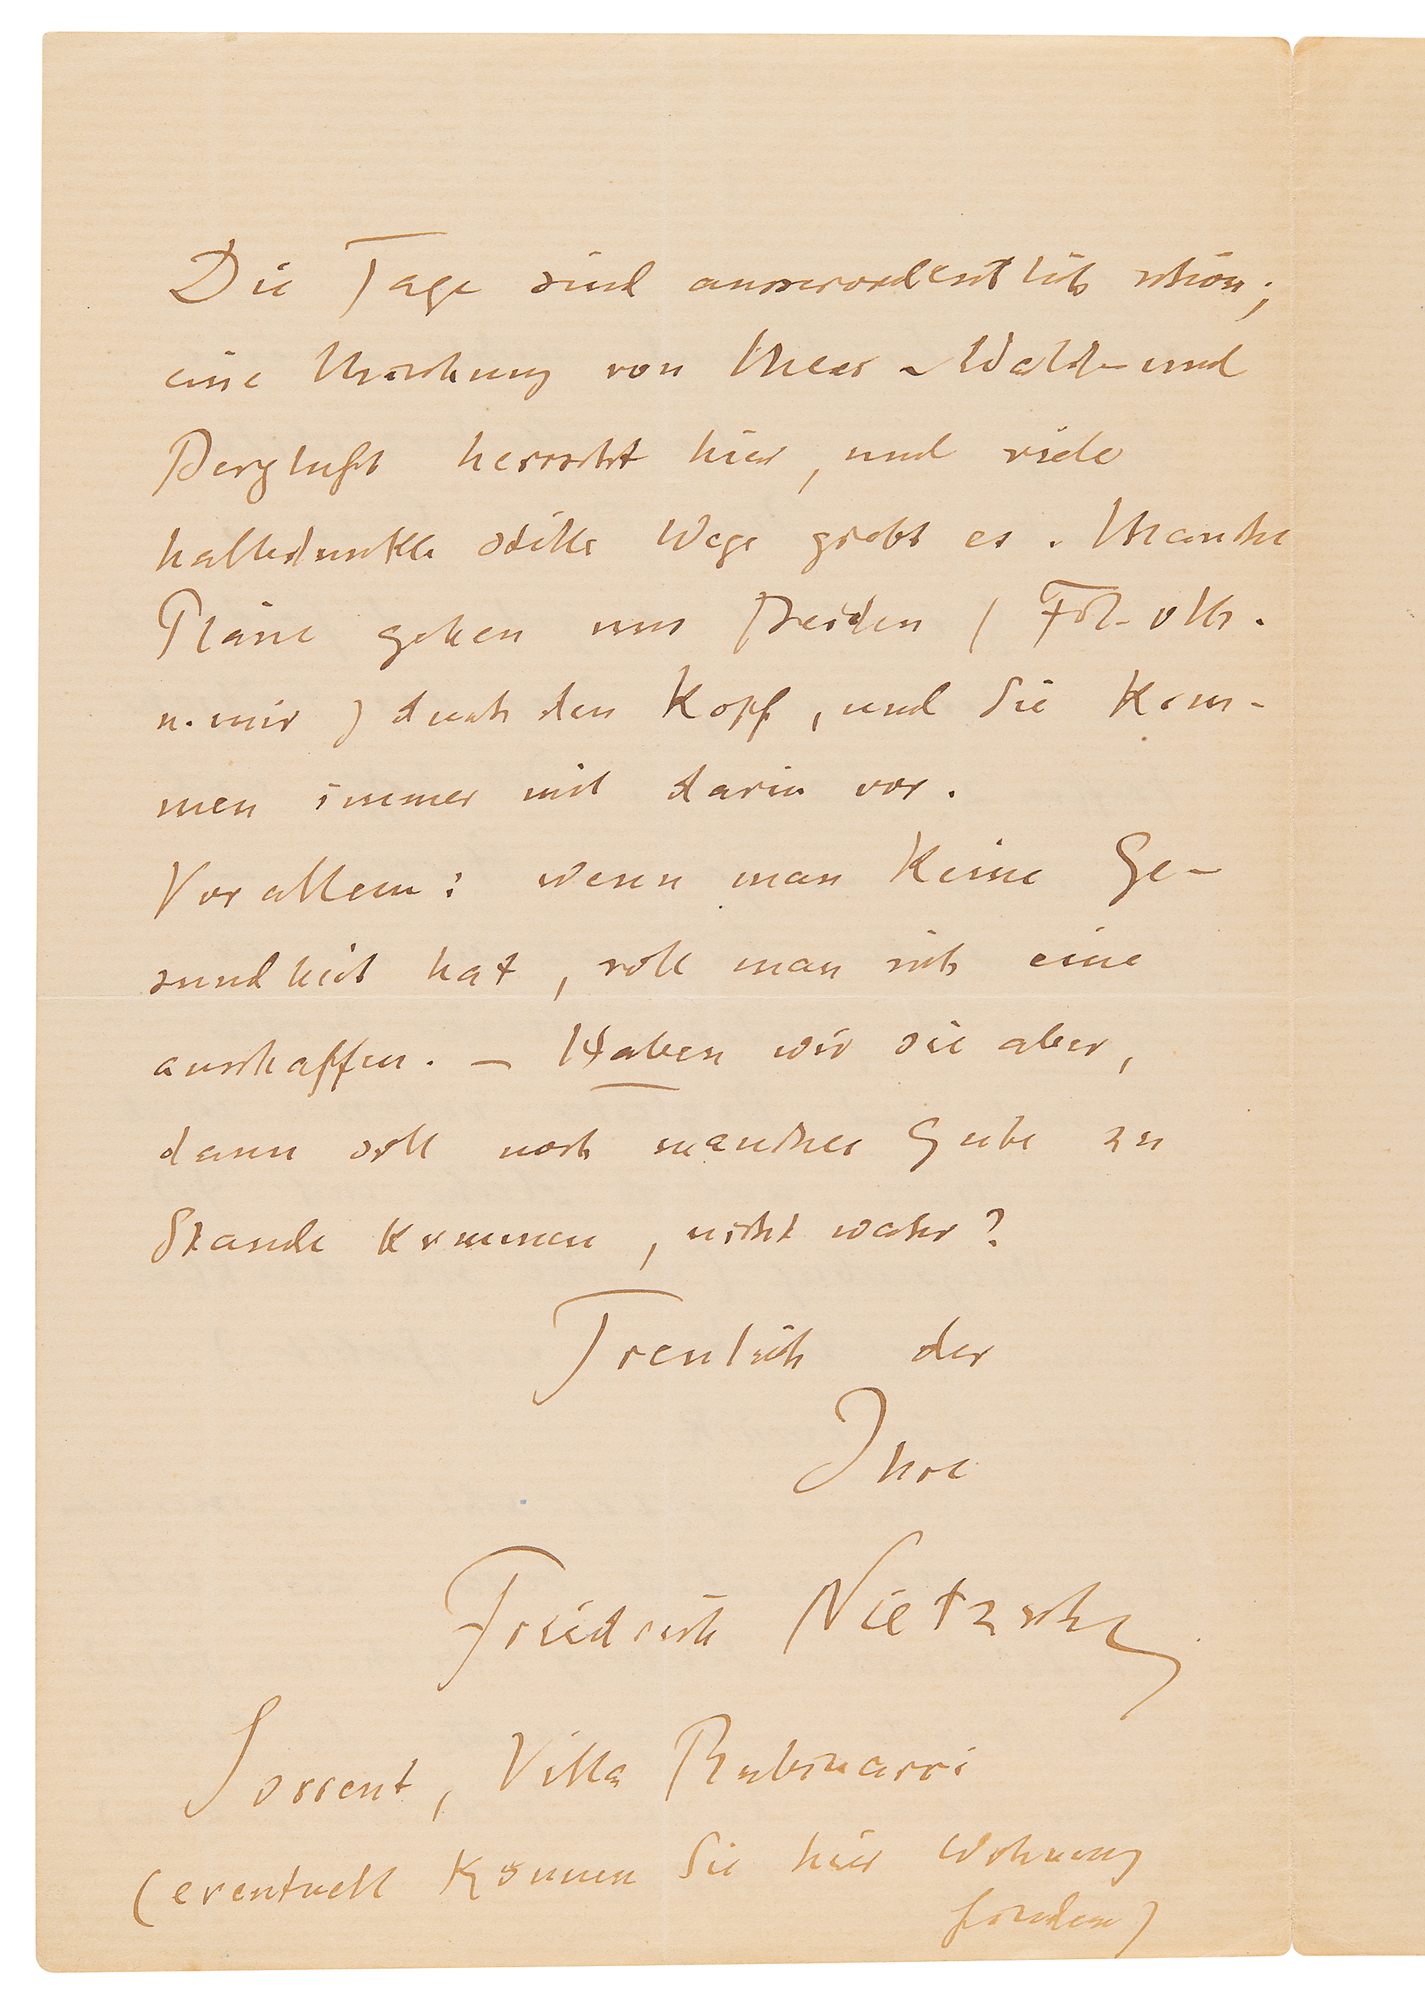 Die Tage sind ausserordentlich schön;
eine Mischung von Meer-Wald-und
Bergluft herrscht hier, und viele
halbdunkle stille Wege giebt es. Manche
Pläne gehen uns Beiden (Frl. v M.
u. mir) durch den Kopf, und Sie kom-
men immer mit darin vor.
Vor allem: wenn man keine Ge-
sundheit hat, soll man sich eine
anschaffen. — Haben wir sie aber,
dann soll noch manches Gute zu
Stande kommen, nicht wahr?
Treulich der
Ihre
Friedrich Nietzsche
Sorrent, Villa Rubinacci
(eventuell können Sie hier Wohnung
finden)